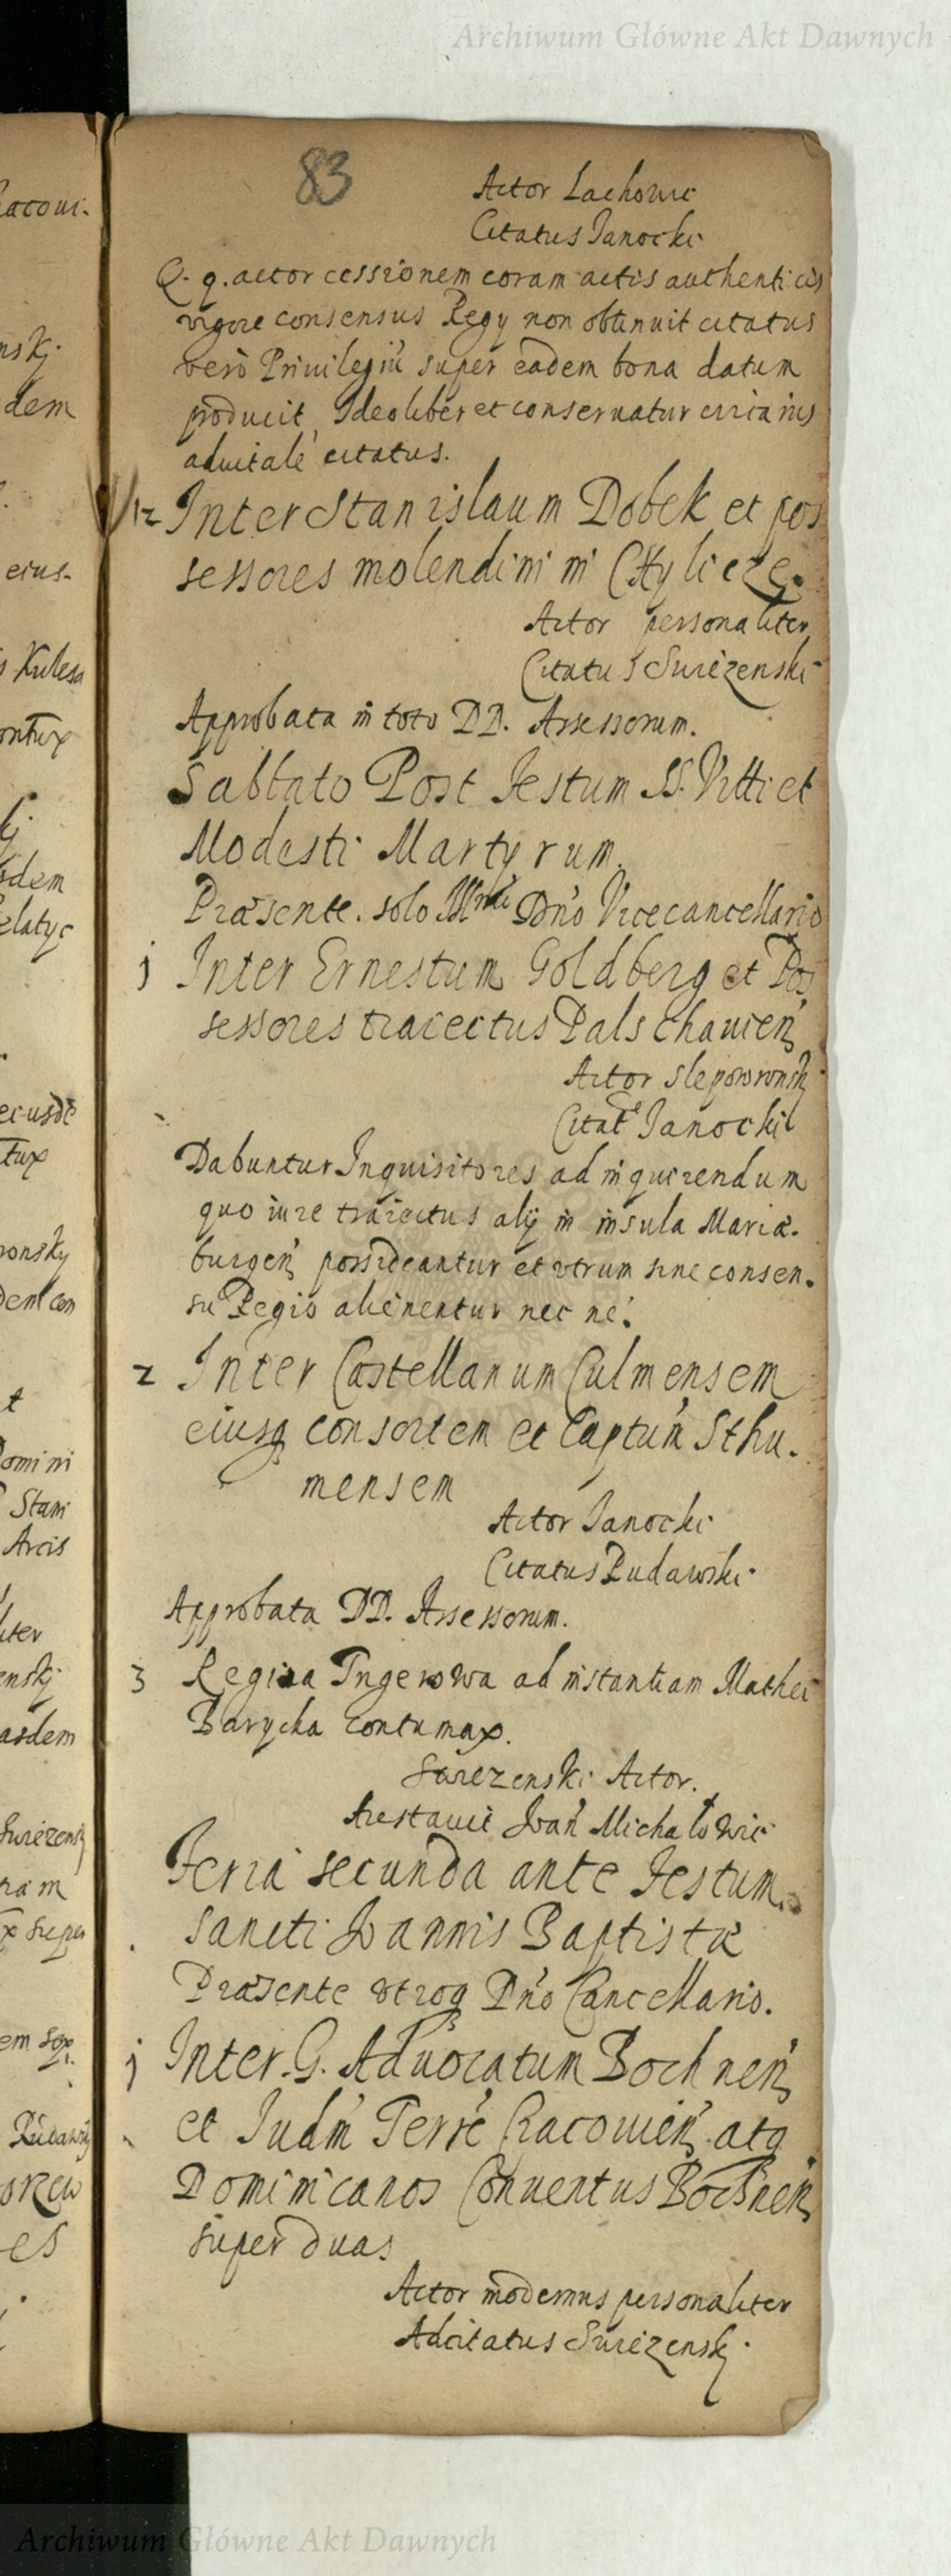 Archiwum Główne Akt Dawnych
83
Actor Lachowic
Citatus Janocki
Q. q. actor cessionem coram actis authenticis
vigore consensus Regy non obtinuit citatus
verò Privilegiũ super eadem bona datum
producit, Ideo liber et conservatur circa ius
advitale citatus.
12 Inter Stanislaum Dobek et pos
sessores molendini in Chylicze.
Actor personaliter
Citatus Surēzenski
Approbata in toto DD. Assessorum.
Sabbato Post Festum SS. Vitti et
Modesti Martyrum.
Præsente solo Illmo Dno Vicecancellario
j Inter Ernestum Goldberg et Pos
sessores traiectus Palschavien
Actor Slepowronsky
Citat Janocki
Dabuntur Inquisitores ad inquirendum
quo iure traiectus alij in insula Mariæ.
burgen possideantur et utrum sine consen.
su Regio alienentur nec ne.
2 Inter Castellanum Culmensem
eiusq consortem et Captum Sthu.
mensem
Actor Janocki
Citatus Rudawski.
Approbata DD. Assessorum.
3 Regina Ingerowa ad instantiam Mathei
Barycka contumax.
Surezenski Actor.
Arestavit Joan Michalowic
Feria secunda ante Festum
Sancti Joannis Baptistæ
Præsente utroq Dno Cancellario.
j Inter G. Advocatum Bochnen
et Judm Terre Cracovien atq
Dominicanos Conventus Bochnen
super duas
Actor modernus personaliter
Adcitatus Surēzensky.
Archiwum Główne Akt Dawnych